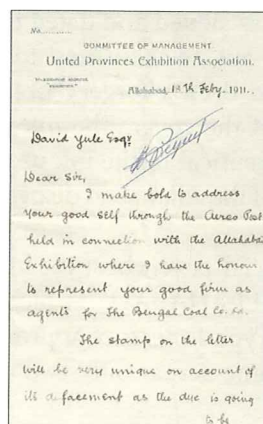 No.
COMMITTEE OF MANAGEMENT
United Provinces Exhibition Association.
TELEGRAPHIC ADDRESS,
"EXHIBITION."
Allahabad, 18th Feby. 1911.
David Yule Esqr.
Dear Sir,
I make bold to address
your good self through the Aereo Post
held in connection with the Allahabad
Exhibition where I have the honour
to represent your good firm as
agents for The Bengal Coal Co. Ld.
The stamp on the letter
will be very unique on account of
its defacement as the die is going
to be